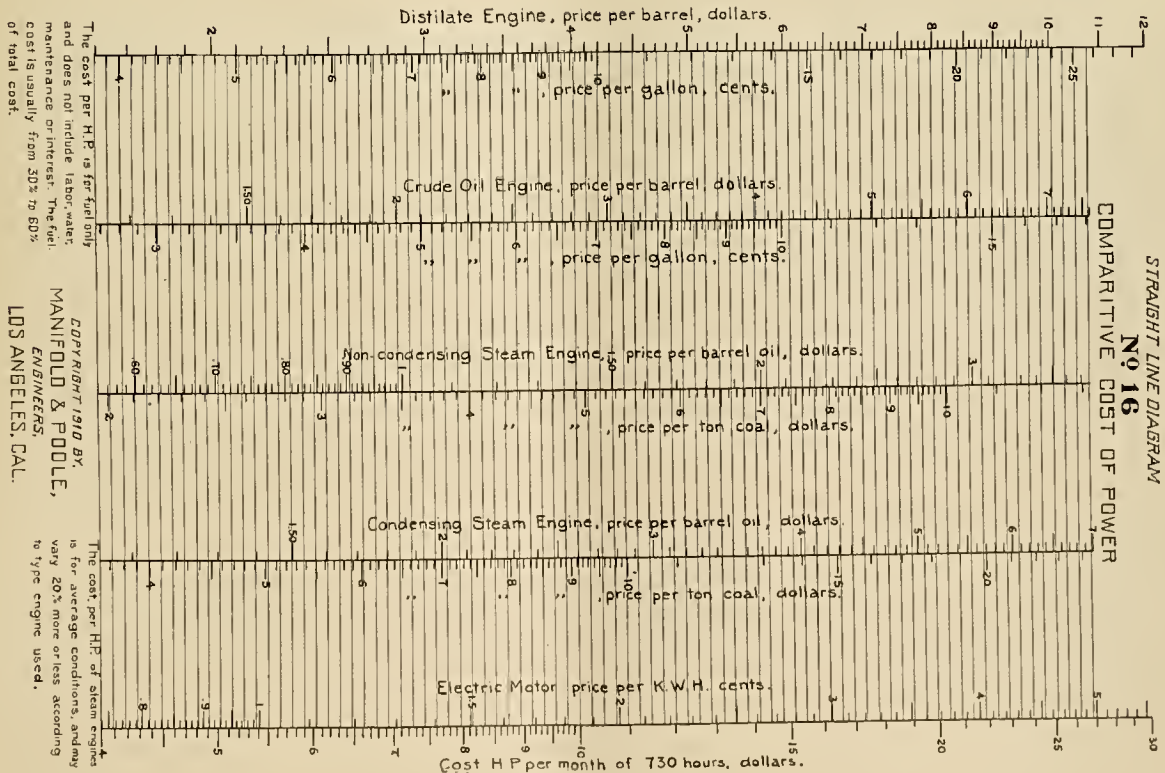 STRAIGHT LINE DIAGRAM
No. 16
COMPARITIVE COST OF POWER
Distilate Engine, price per barrel, dollars.
2 3 4 5 6 7 8 9 10 11 12
4 5 6 7 8 9 10 15 20 25
" " , price per gallon, cents.
Crude Oil Engine, price per barrel, dollars.
1.50 2 3 4 5 6 7
3 4 5 6 7 8 9 10 15
" " " , price per gallon, cents.
Non-condensing Steam Engine, price per barrel oil, dollars.
.60 .70 .80 .90 1 1.50 2 3
2 3 4 5 6 7 8 9 10
" " " , price per ton coal, dollars.
Condensing Steam Engine, price per barrel oil, dollars.
1.50 2 3 4 5 6 7
4 5 6 7 8 9 10 15 20
" " " , price per ton coal, dollars.
Electric Motor price per K.W.H. cents.
.8 .9 1 1.5 2 3 4 5
4 5 6 7 8 9 10 15 20 25 30
Cost H P per month of 730 hours, dollars.
The cost per H.P. is for fuel only
and does not include labor, water,
maintenance or interest. The fuel
cost is usually from 30% to 60%
of total cost.
COPYRIGHT 1910 BY.
MANIFOLD & POOLE,
ENGINEERS,
LOS ANGELES, CAL.
The cost, per H.P. of steam engines
is for average conditions, and may
vary 20% more or less according
to type engine used.